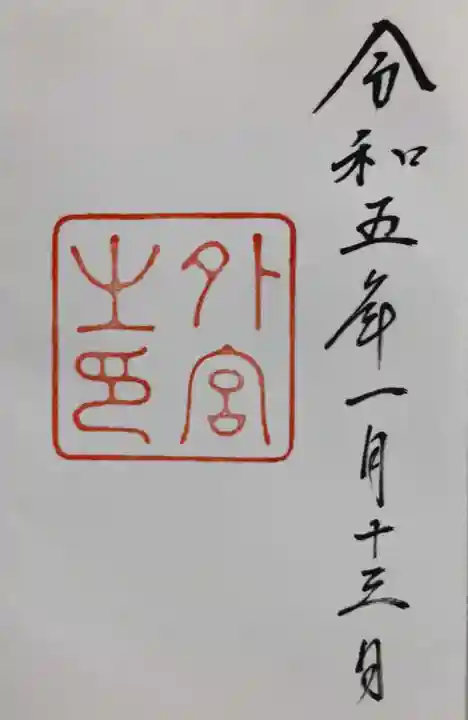 令和五年一月十三日
外宮
之印